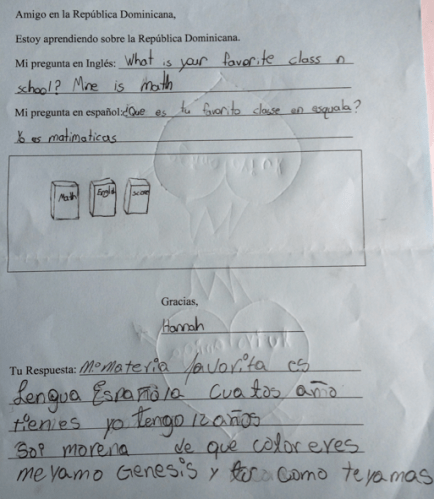 Amigo en la República Dominicana,
Estoy aprendiendo sobre la República Dominicana.
Mi pregunta en Inglés: What is your favorite class n
school? Mine is math
Mi pregunta en español: ¿Que es tu favorito classe en esquala?
Yo es matimaticas
Math English Science
Gracias,
Hannah
Tu Respuesta: Mi Materia favorita es
Lengua Española Cuatos año
tienies yo tengo 12 años
Soi morena de que color eres
me yamo Genesis y como te yamas